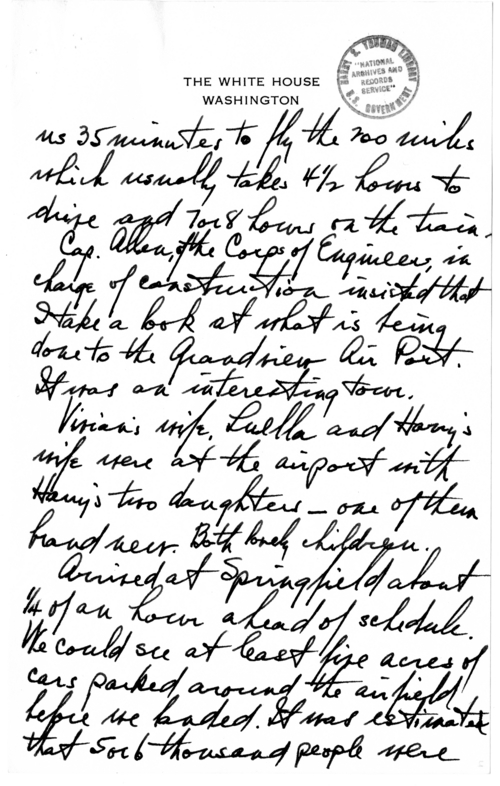 THE WHITE HOUSE
WASHINGTON
HARRY S. TRUMAN LIBRARY
"NATIONAL
ARCHIVES AND
RECORDS
SERVICE"
U.S. GOVERNMENT
us 35 minutes to fly the 200 miles
which usually takes 4½ hours to
drive and 7 or 8 hours on the train.
Cap. Allen, of the Corps of Engineers, in
charge of construction insisted that
I take a look at what is being
done to the Grandview Air Port.
It was an interesting tour.
Vivian's wife, Luella and Harry's
wife were at the airport with
Harry's two daughters – one of them
brand new. Both lovely children.
Arrived at Springfield about
¼ of an hour ahead of schedule.
We could see at least five acres of
cars parked around the airfield
before we landed. It was estimated
that 5 or 6 thousand people were